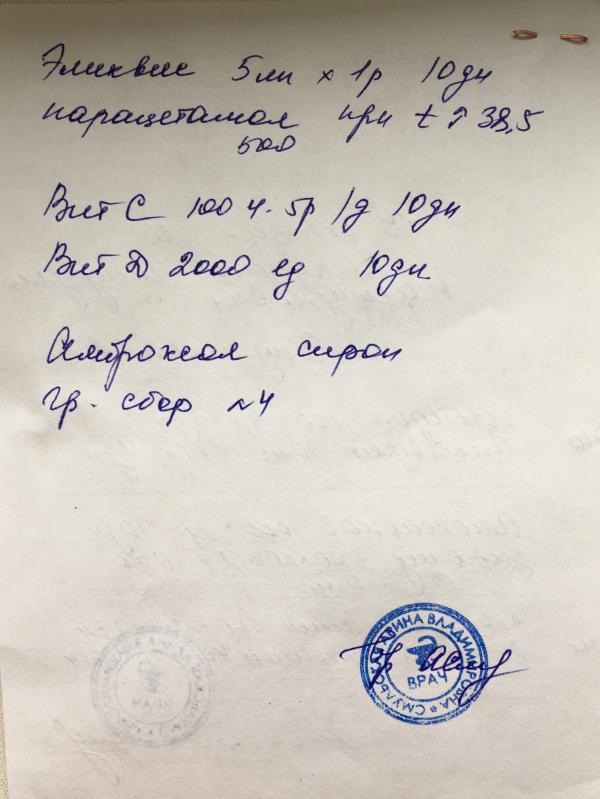 Эликвис 5мг х 1р 10дн
парацетамол при t ↑ 38,5
500
Вит С 100 ч. 5р/д 10дн
Вит D 2000 ед 10дн
Амброксол сироп
гр. сбор №4
ВЛАДИМИРОВНА
ВРАЧ